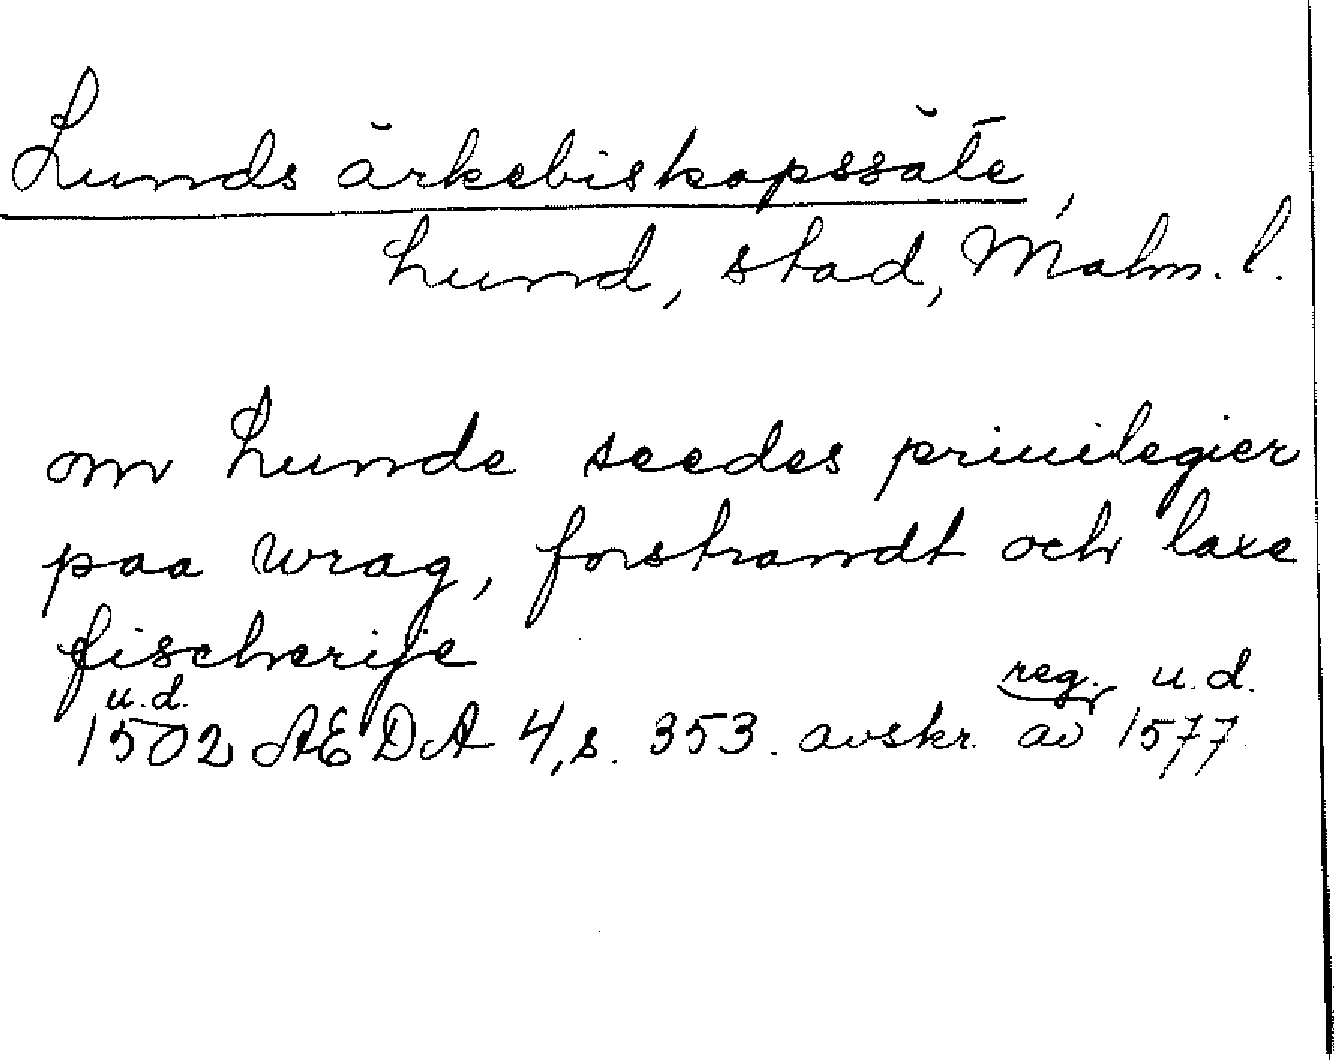 Lunds ärkebiskopssäte,
Lund, stad, Malm. l.
om Lunde seedes priuilegier
paa wrag, forstrandt och laxe
fischerije
u.d. reg. u.d.
1502 ÆDA 4, s. 353. avskr. av 1577